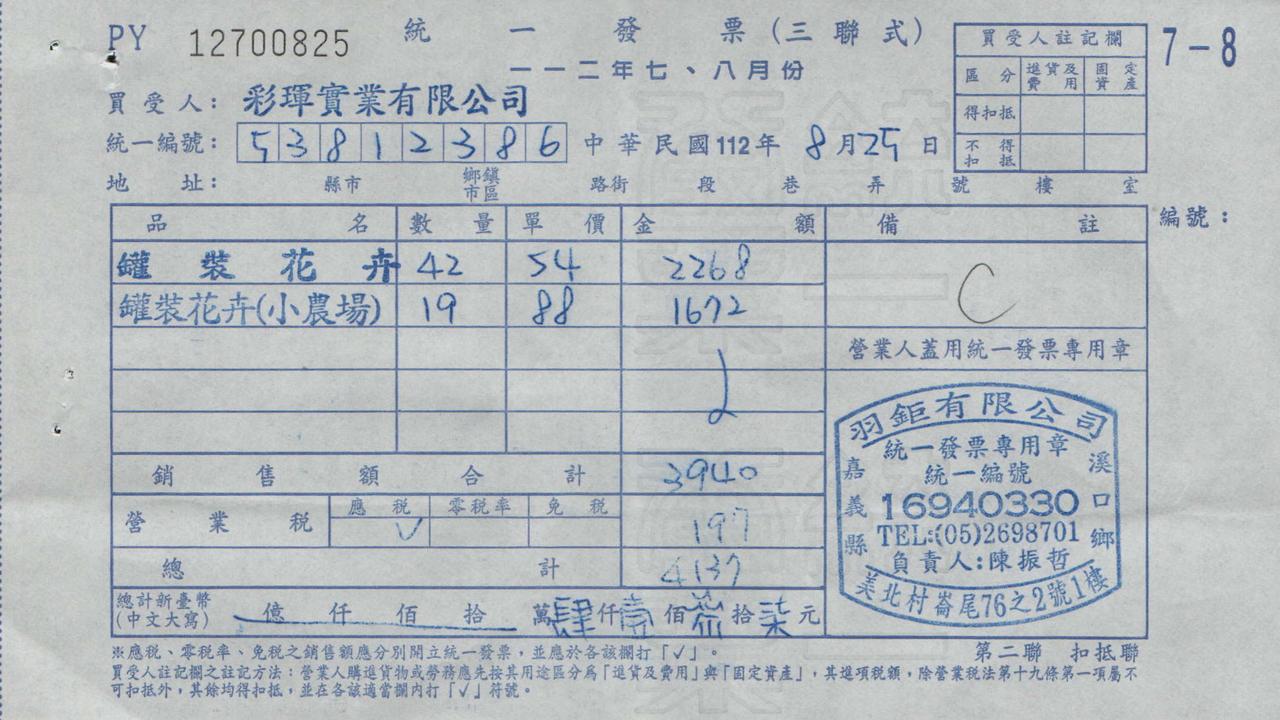 PY 12700825 統一發票(三聯式)
一一二年七、八月份
買受人註記欄
區分 進貨及費用 固定資產
得扣抵
不得扣抵
7-8
買受人：彩琿實業有限公司
統一編號：53812386 中華民國112年8月25日
地址： 縣市 鄉鎮市區 路街 段 巷 弄 號 樓 室
編號：
品名 數量 單價 金額 備註
罐裝花卉 42 54 2268
罐裝花卉(小農場) 19 88 1672
C
營業人蓋用統一發票專用章
銷售額合計 3940
營業稅 應稅 零稅率 免稅
V 197
總計 4137
總計新臺幣(中文大寫) 億仟佰拾萬肆仟壹佰參拾柒元
羽鉅有限公司
統一發票專用章
統一編號
16940330
TEL:(05)2698701
負責人:陳振哲
嘉義縣
溪口鄉
美北村崙尾76之2號1樓
※應稅、零稅率、免稅之銷售額應分別開立統一發票，並應於各該欄打「✓」。
第二聯 扣抵聯
買受人註記欄之註記方法：營業人購進貨物或勞務應先按其用途區分為「進貨及費用」與「固定資產」，其進項稅額，除營業稅法第十九條第一項屬不
可扣抵外，其餘均得扣抵，並在各該適當欄內打「✓」符號。